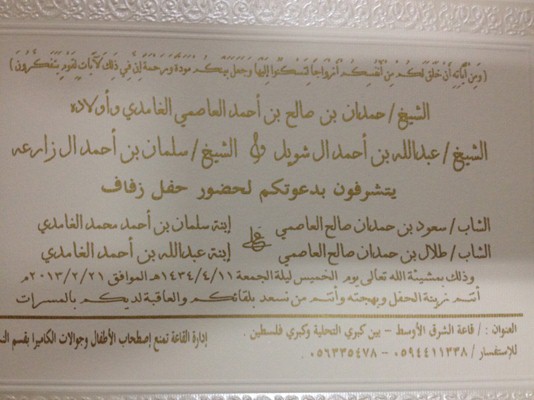 ( وَمِنْ آيَاتِهِ أَنْ خَلَقَ لَكُمْ مِنْ أَنْفُسِكُمْ أَزْوَاجاً لِتَسْكُنُوا إِلَيْهَا وَجَعَلَ بَيْنَكُمْ مَوَدَّةً وَرَحْمَةً إِنَّ فِي ذَلِكَ لَآيَاتٍ لِقَوْمٍ يَتَفَكَّرُونَ )
الشيخ / حمدان بن صالح بن أحمد العاصمي الغامدي وأولاده
الشيخ / عبدالله بن أحمد ال شويل و الشيخ / سلمان بن أحمد ال زارعه
يتشرفون بدعوتكم لحضور حفل زفاف
الشاب / سعود بن حمدان صالح العاصمي على إبنة سلمان بن أحمد محمد الغامدي
الشاب / طلال بن حمدان صالح العاصمي إبنة عبدالله بن أحمد الغامدي
وذلك بمشيئة الله تعالى يوم الخميس ليلة الجمعة ١٤٣٤/٤/١١هـ الموافق ٢٠١٣/٢/٢١م
أنتم زينة الحفل وبهجته وأنتم من نسعد بلقائكم والعاقبة لديكم بالمسرات
العنوان : / قاعة الشرق الأوسط - بين كبري التحلية وكبري فلسطين . إدارة القاعة تمنع إصطحاب الأطفال وجوالات الكاميرا بقسم
للإستفسار / ٠٥٩٤٤١١٣٣٨ - ٠٥٦٣٣٥٤٧٨ .